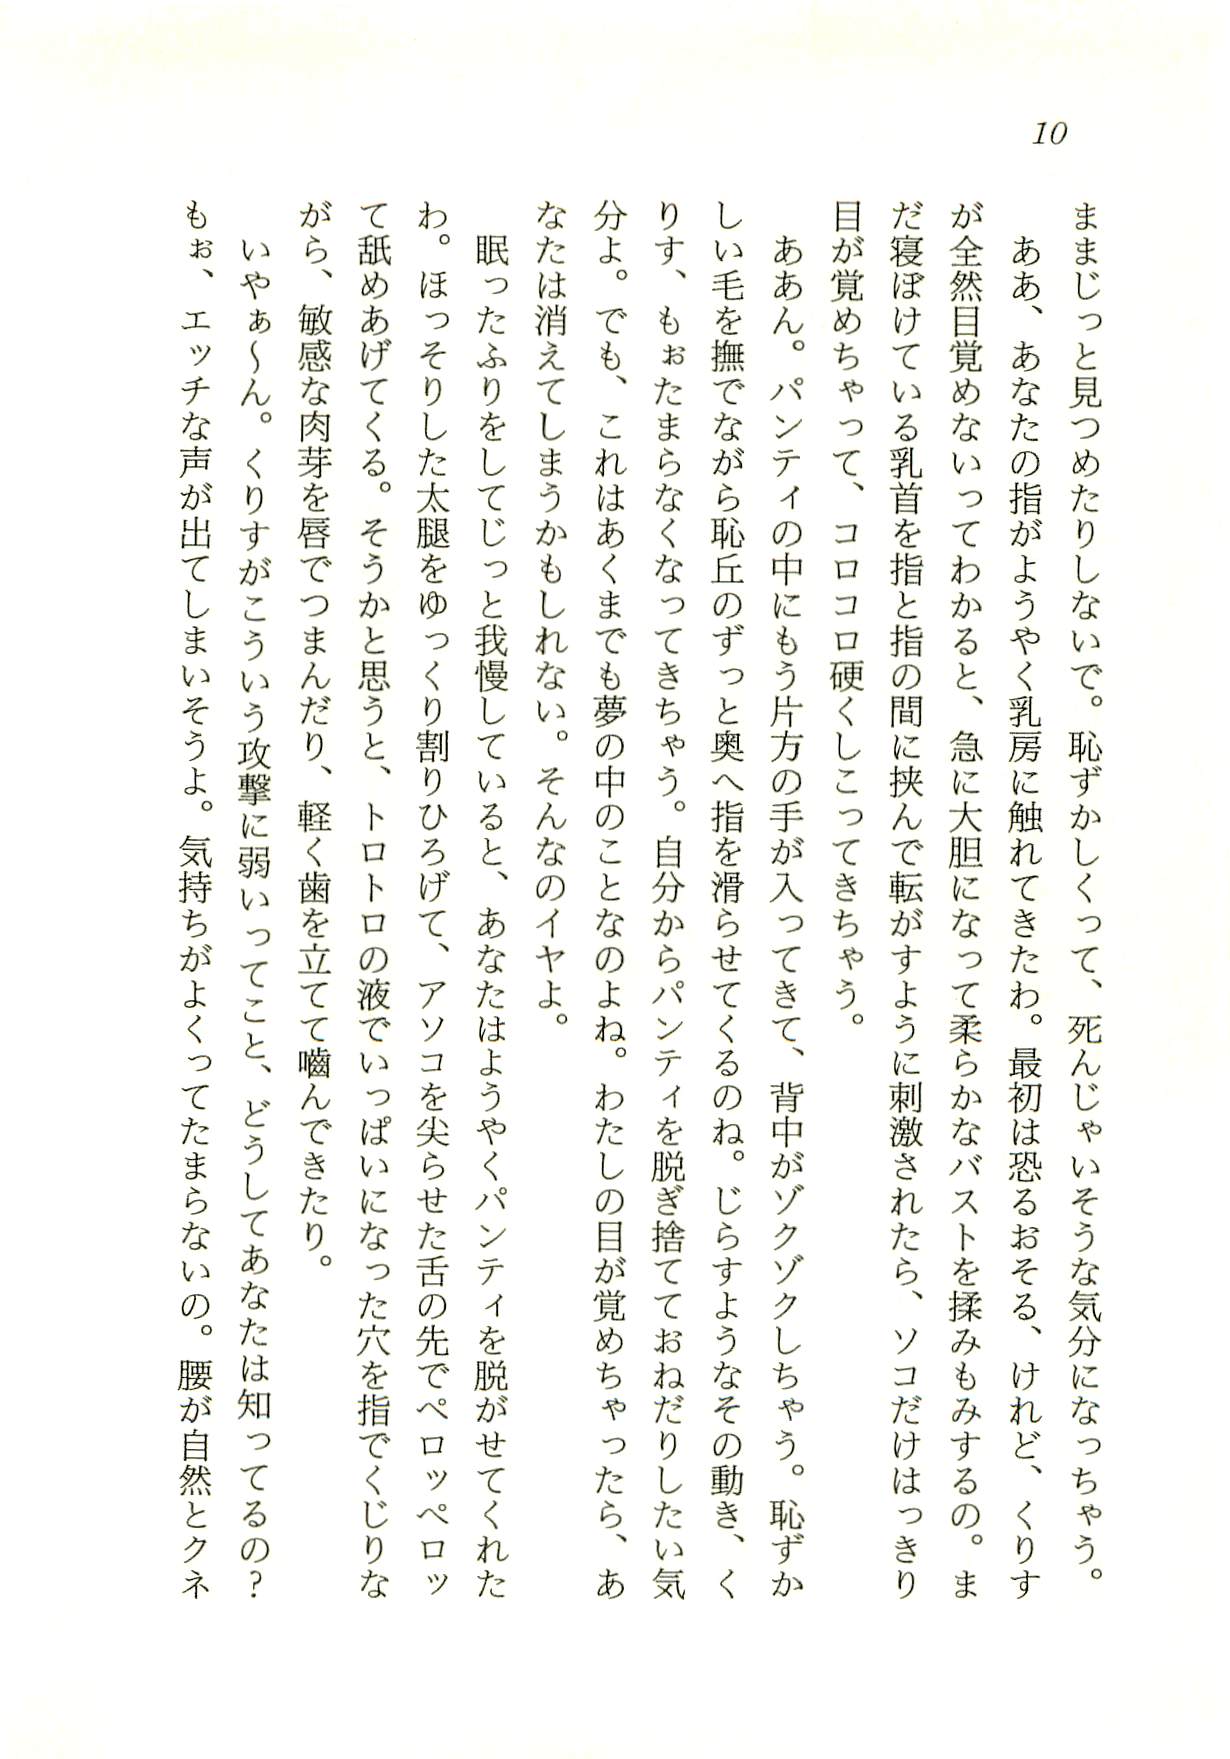 10
ままじっと見つめたりしないで。恥ずかしくって、死んじゃいそうな気分になっちゃう。
ああ、あなたの指がようやく乳房に触れてきたわ。最初は恐るおそる、けれど、くりす
が全然目覚めないってわかると、急に大胆になって柔らかなバストを揉みもみするの。ま
だ寝ぼけている乳首を指と指の間に挟んで転がすように刺激されたら、ソコだけはっきり
目が覚めちゃって、コロコロ硬くしこってきちゃう。
ああん。パンティの中にもう片方の手が入ってきて、背中がゾクゾクしちゃう。恥ずか
しい毛を撫でながら恥丘のずっと奥へ指を滑らせてくるのね。じらすようなその動き、く
りす、もぉたまらなくなってきちゃう。自分からパンティを脱ぎ捨てておねだりしたい気
分よ。でも、これはあくまでも夢の中のことなのよね。わたしの目が覚めちゃったら、あ
なたは消えてしまうかもしれない。そんなのイヤよ。
眠ったふりをしてじっと我慢していると、あなたはようやくパンティを脱がせてくれた
わ。ほっそりした太腿をゆっくり割りひろげて、アソコを尖らせた舌の先でペロッペロッ
て舐めあげてくる。そうかと思うと、トロトロの液でいっぱいになった穴を指でくじりな
がら、敏感な肉芽を唇でつまんだり、軽く歯を立てて嚙んできたり。
いやぁ～ん。くりすがこういう攻撃に弱いってこと、どうしてあなたは知ってるの？
もぉ、エッチな声が出てしまいそうよ。気持ちがよくってたまらないの。腰が自然とクネ